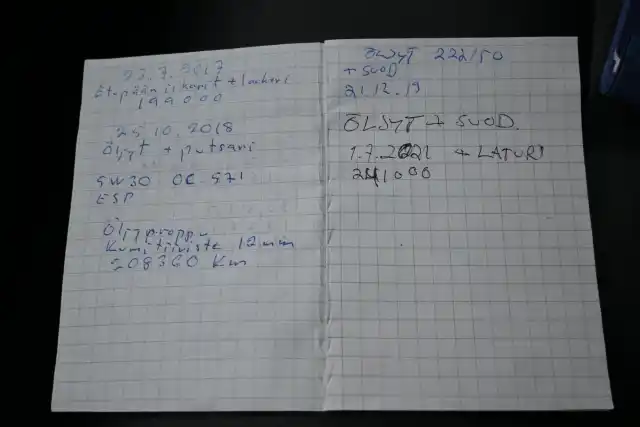 27.7.2017
Etupään iskarit + laakeri
199000
25.10.2018
Öljyt + putsari
5W30 OC 571
ESP
Öljyproppu
Kumitiiviste 12mm
208360 Km
ÖLJYT 222150
+ SUOD
21.12.19
ÖLJYT + SUOD.
1.7.2021 + LATURI
241000